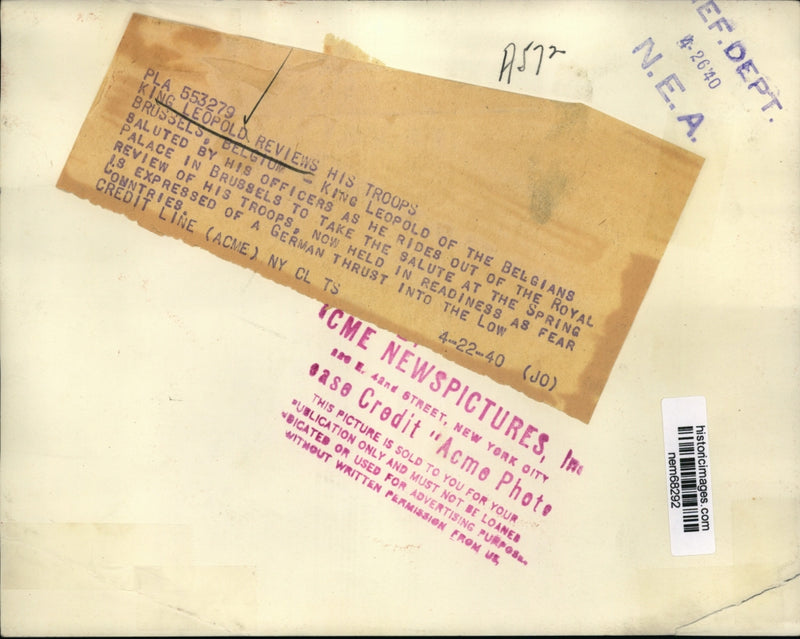 A572
EF. DEPT.
4-26 40
N. E. A.
PLA 553279
KING LEOPOLD REVIEWS HIS TROOPS
BRUSSELS, BELGIUM - KING LEOPOLD OF THE BELGIANS
SALUTED BY HIS OFFICERS AS HE RIDES OUT OF THE ROYAL
PALACE IN BRUSSELS TO TAKE THE SALUTE AT THE SPRING
REVIEW OF HIS TROOPS, NOW HELD IN READINESS AS FEAR
IS EXPRESSED OF A GERMAN THRUST INTO THE LOW
COUNTRIES.
CREDIT LINE (ACME) NY CL TS
4-22-40 (JO)
ACME NEWSPICTURES, Inc
E. 42nd STREET, NEW YORK CITY
ease Credit "Acme Photo
THIS PICTURE IS SOLD TO YOU FOR YOUR
PUBLICATION ONLY AND MUST NOT BE LOANED
DICATED OR USED FOR ADVERTISING PURPOSE
WITHOUT WRITTEN PERMISSION FROM US,
historicimages.com
nem68292